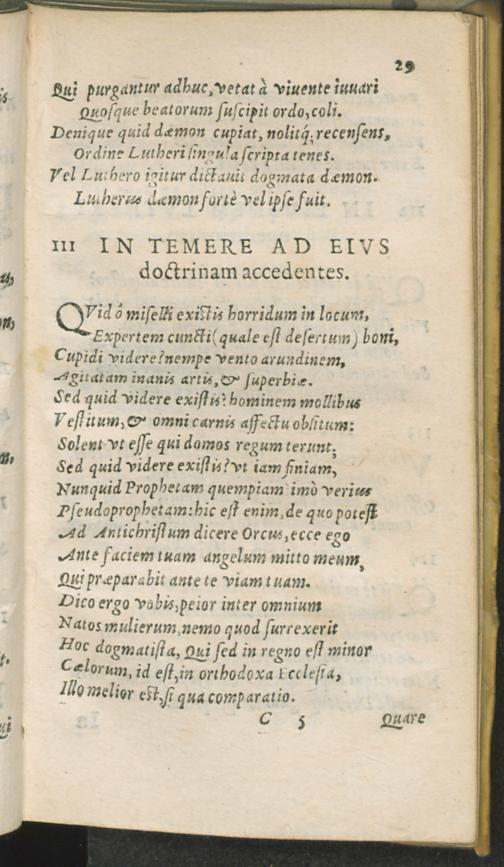 29
Qui purgantur adhuc, vetat à viuente iuuari
Quosque beatorum suscipit ordo, coli.
Denique quid dæmon cupiat, nolitq́; recensens,
Ordine Lutheri singula scripta tenes.
Vel Luthero igitur dictauit dogmata dæmon.
Lutherus dæmon fortè vel ipse fuit.
III IN TEMERE AD EIVS
doctrinam accedentes.
QVid ô miselli existis horridum in locum,
Expertem cuncti (quale est desertum) boni,
Cupidi videre? nempe vento arundinem,
Agitatam inanis artis, & superbiæ.
Sed quid videre existis? hominem mollibus
Vestitum, & omni carnis affectu obsitum:
Solent vt esse qui domos regum terunt;
Sed quid videre existis? vt iam finiam,
Nunquid Prophetam quempiam imò verius
Pseudoprophetam: hic est enim, de quo potest
Ad Antichristum dicere Orcus, ecce ego
Ante faciem tuam angelum mitto meum,
Qui præparabit ante te viam tuam.
Dico ergo vobis, peior inter omnium
Natos mulierum, nemo quod surrexerit
Hoc dogmatista, Qui sed in regno est minor
Cælorum, id est, in orthodoxa Ecclesia,
Illo melior est, si qua comparatio.
C 5 Quare